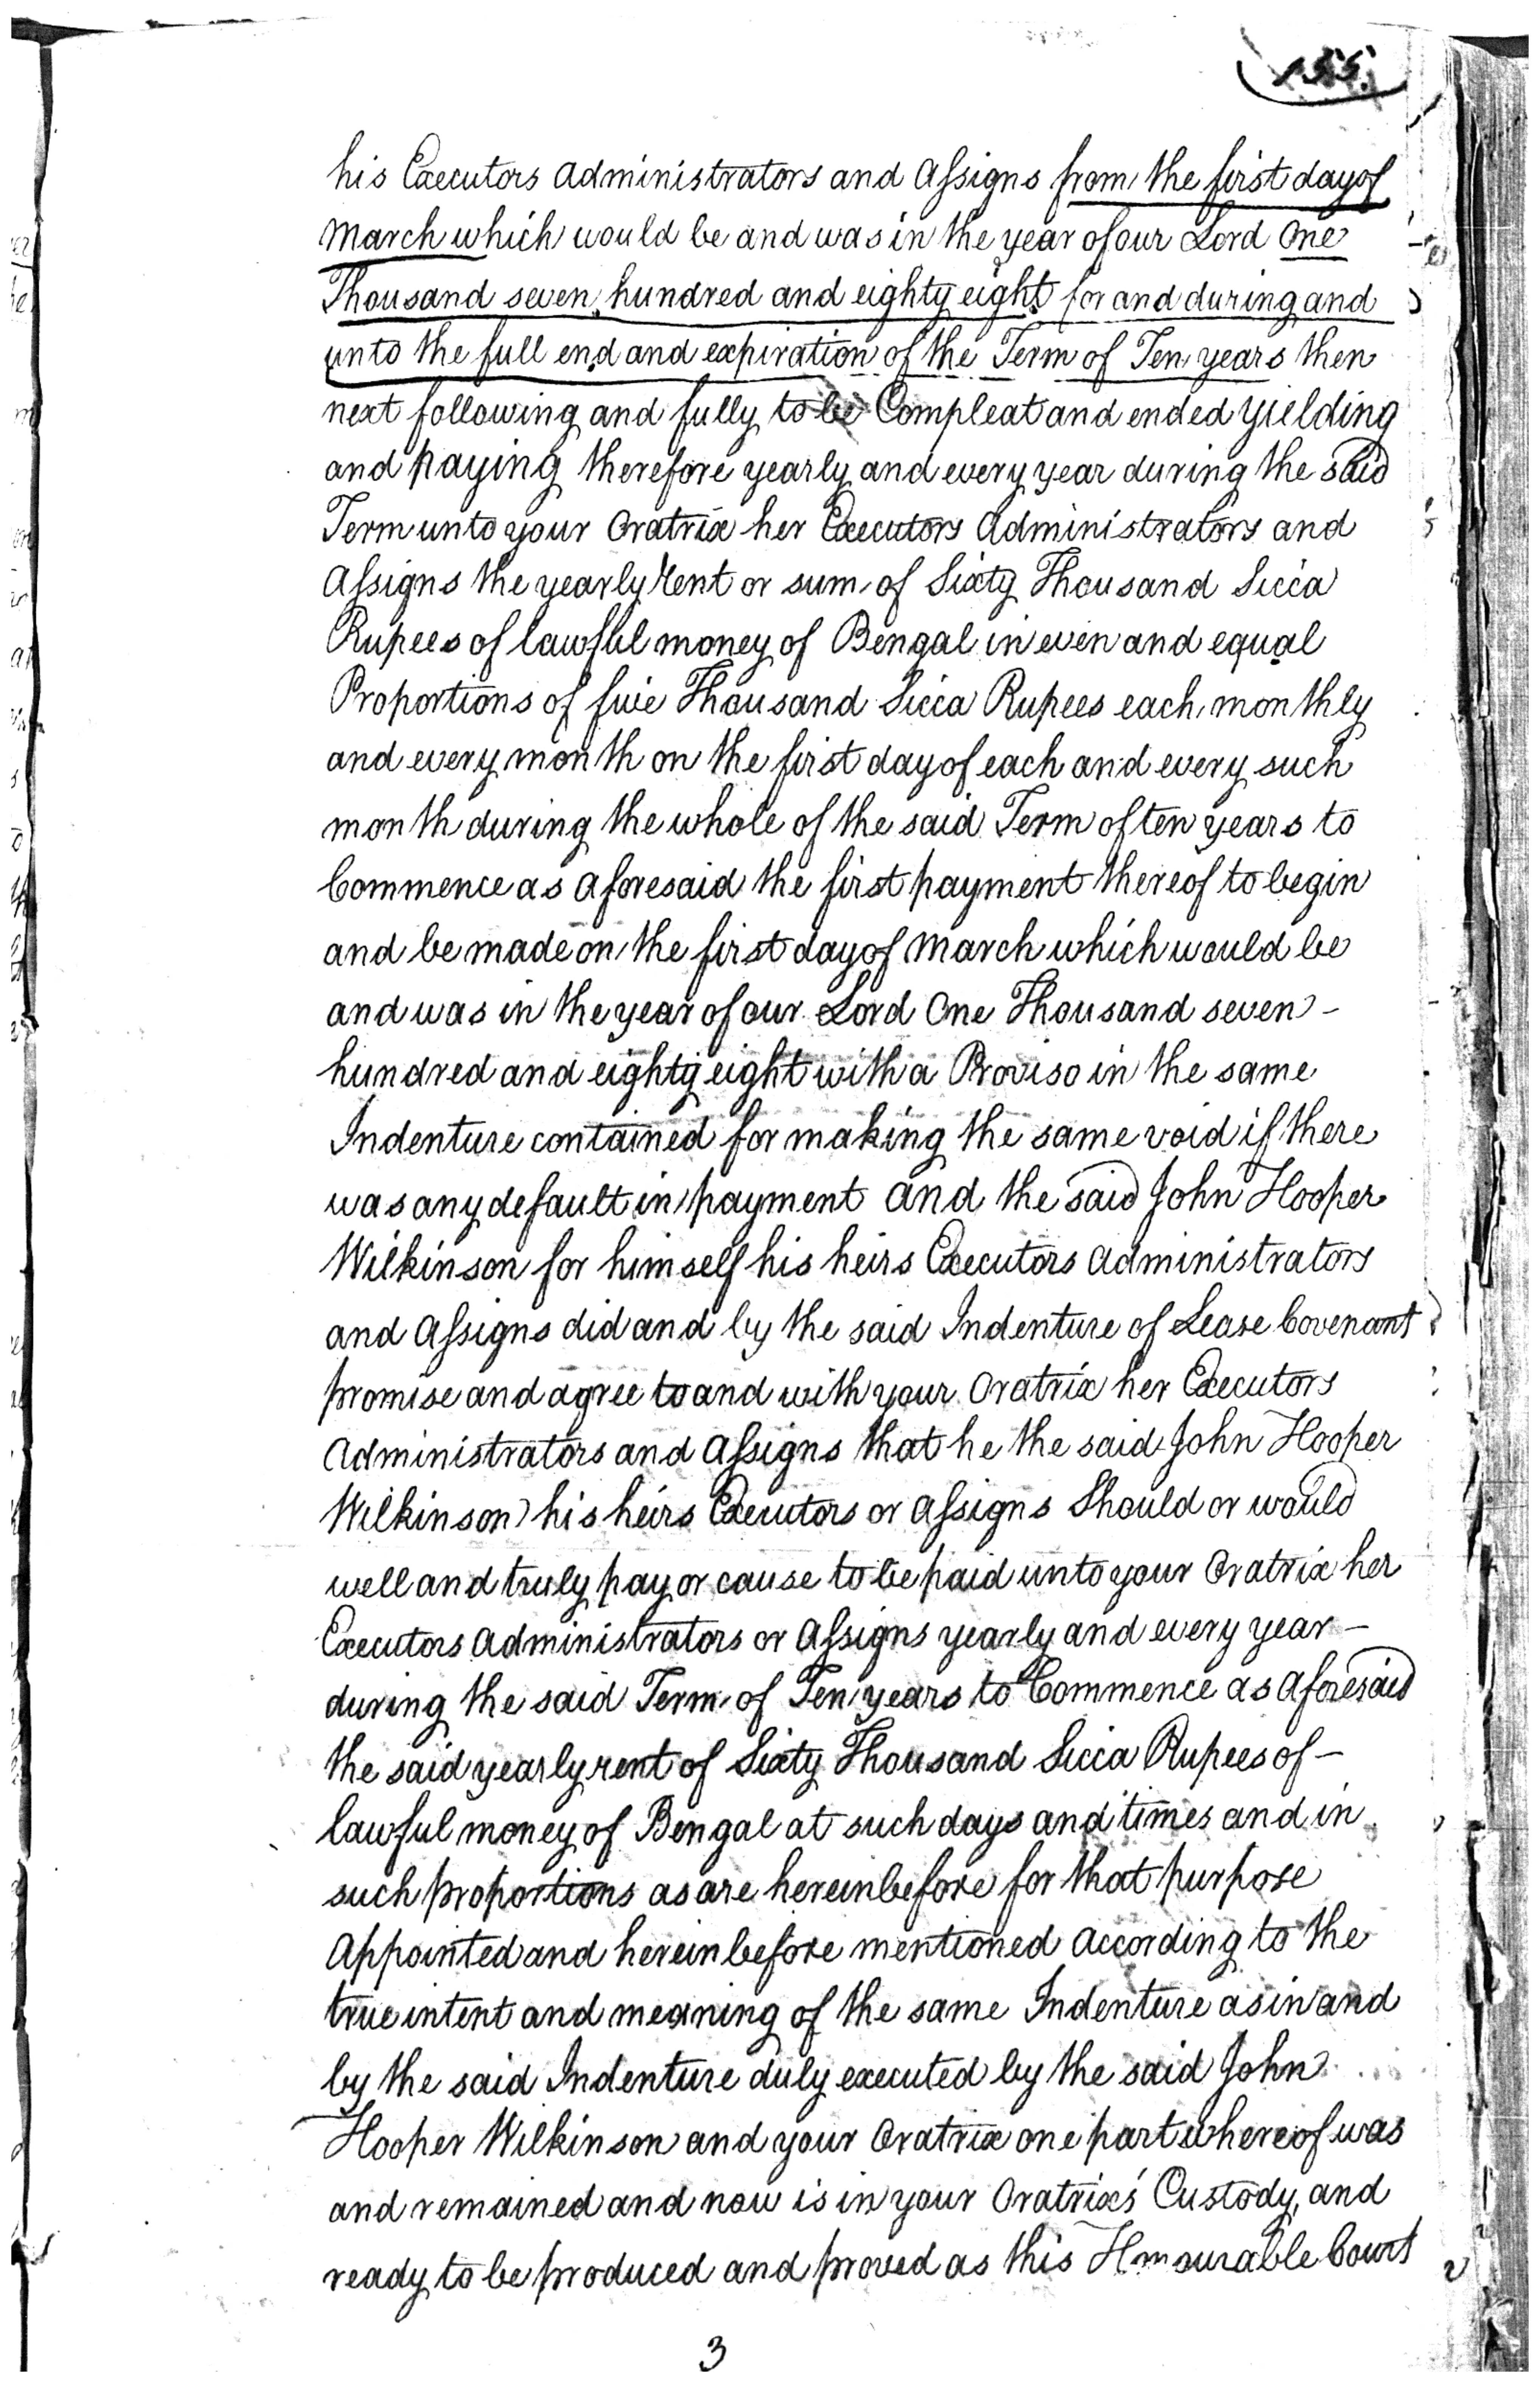 his Executors Administrators and Assigns from the first day of
March which would be and was in the year of our Lord One
Thousand seven hundred and eighty eight for and during and
unto the full end and expiration of the Term of Ten years then
next following and fully to be Compleat and ended yielding
and paying therefore yearly and every year during the said
Term unto your Oratrix her Executors Administrators and
Assigns the yearly Rent or sum of Sixty Thousand Sicca
Rupees of lawful money of Bengal in even and equal
Proportions of five Thousand Sicca Rupees each monthly
and every month on the first day of each and every such
month during the whole of the said Term of ten years to
Commence as aforesaid the first payment thereof to begin
and be made on the first day of March which would be
and was in the year of our Lord One Thousand seven -
hundred and eighty eight with a Proviso in the same
Indenture contained for making the same void if there
was any default in payment and the said John Hooper
Wilkinson for himself his heirs Executors Administrators
and Assigns did and by the said Indenture of Lease Covenant
promise and agree to and with your Oratrix her Executors
Administrators and Assigns that he the said John Hooper
Wilkinson his heirs Executors or Assigns Should or would
well and truly pay or cause to be paid unto your Oratrix her
Executors Administrators or Assigns yearly and every year -
during the said Term of Ten years to Commence as aforesaid
the said yearly rent of Sixty Thousand Sicca Rupees of -
lawful money of Bengal at such days and times and in
such proportions as are hereinbefore for that purpose
Appointed and hereinbefore mentioned According to the
true intent and meaning of the same Indenture as in and
by the said Indenture duly executed by the said John
Hooper Wilkinson and your Oratrix one part whereof was
and remained and now is in your Oratrix's Custody, and
ready to be produced and proved as this Honourable Court
3